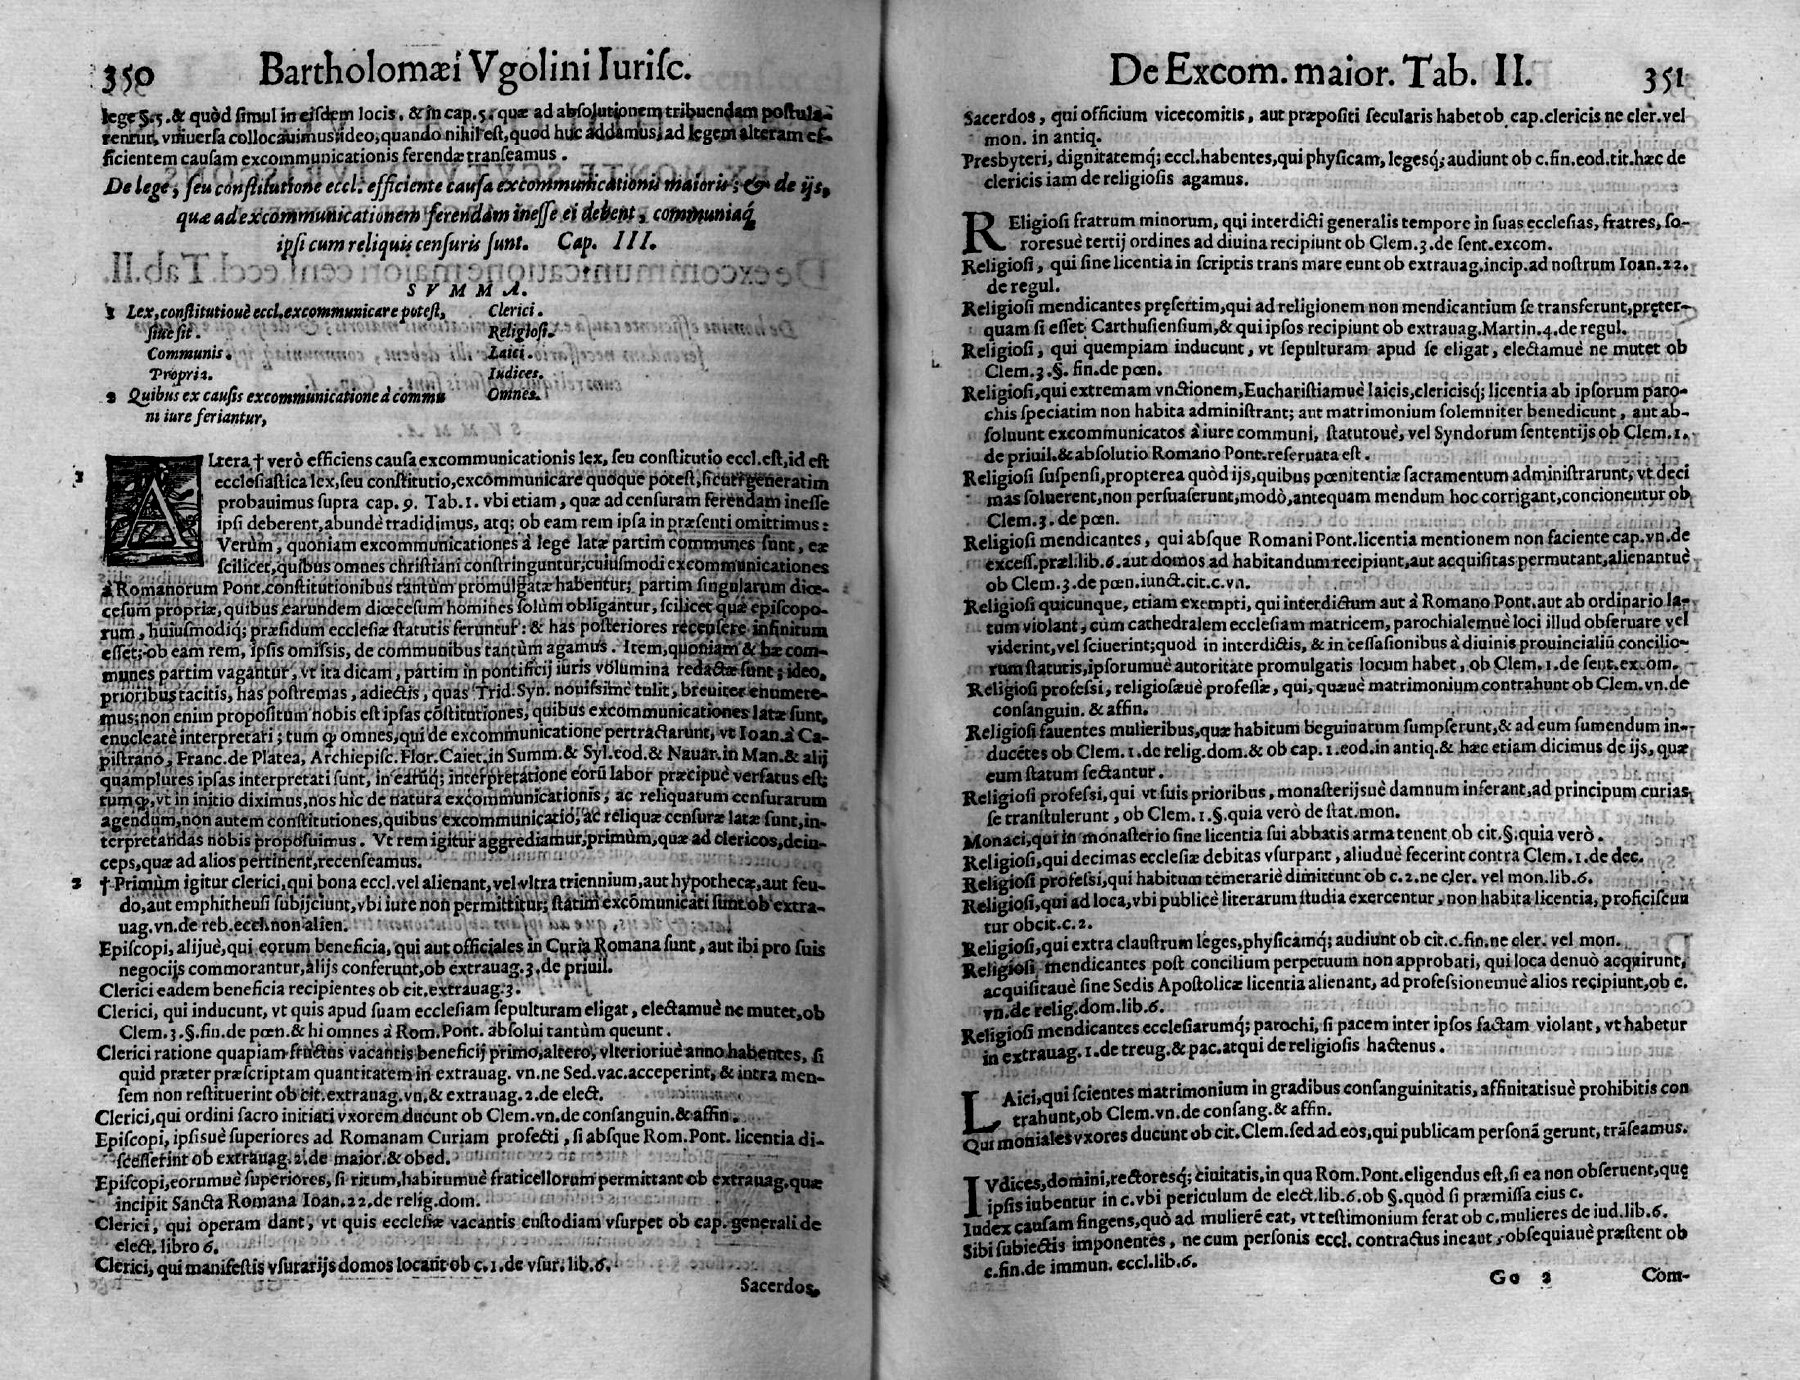 350 Bartholomæi Vgolini Iurisc.
lege §.5. & quòd simul in eisdem locis, & in cap.5. quæ ad absolutionem tribuendam postula-
rentur, vniuersa collocauimus, ideo, quando nihil est, quod huc addamus, ad legem alteram ef-
ficientem causam excommunicationis ferendæ transeamus.
De lege, seu constitutione eccl. efficiente causa excommunicationis maioris; & de ijs,
quæ ad excommunicationem ferendam inesse ei debent, communiaq́
ipsi cum reliquis censuris sunt. Cap. III.
SVMMA.
1 Lex, constitutioue eccl. excommunicare potest,
siue sit.
Communis.
Propria.
2 Quibus ex causis excommunicatione à commu
ni iure feriantur,
Clerici.
Religiosi.
Laici.
Iudices.
Omnes.
1 ALtera † verò efficiens causa excommunicationis lex, seu constitutio eccl. est, id est
ecclesiastica lex, seu constitutio, excommunicare quoque potest, sicuti generatim
probauimus supra cap. 9. Tab. 1. vbi etiam, quæ ad censuram ferendam inesse
ipsi deberent, abundè tradidimus, atq; ob eam rem ipsa in præsenti omittimus:
Verùm, quoniam excommunicationes à lege latæ partim communes sunt, eæ
scilicet, quibus omnes christiani constringuntur; cuiusmodi excommunicationes
à Romanorum Pont. constitutionibus tantùm promulgatæ habentur; partim singularum diœ-
cesum propriæ, quibus earundem diœcesum homines solùm obligantur, scilicet quæ episcopo-
rum, huiusmodiq́; præsidum ecclesiæ statutis feruntur: & has posteriores recensere infinitum
esset; ob eam rem, ipsis omissis, de communibus tantùm agamus. Item, quoniam & hæ com-
munes partim vagantur, vt ita dicam, partim in pontificij iuris volumina redactæ sunt; ideo,
prioribus tacitis, has postremas, adiectis, quas Trid. Syn. nouissimè tulit, breuiter enumere-
mus; non enim propositum nobis est ipsas cõstitutiones, quibus excommunicationes latæ sunt,
enucleatè interpretari; tum ꝙ omnes, qui de excommunicatione pertractarunt, vt Ioan. à Ca-
pistrano, Franc. de Platea, Archiepisc. Flor. Caiet. in Summ. & Syl. eod. & Nauar. in Man. & alij
quamplures ipsas interpretati sunt, in earuq́; interpretatione eorũ labor præcipuè versatus est;
tum ꝙ, vt in initio diximus, nos hic de natura excommunicationis, ac reliquarum censurarum
agendum, non autem constitutiones, quibus excommunicatio, ac reliquæ censuræ latæ sunt, in-
terpretandas nobis proposuimus. Vt rem igitur aggrediamur, primùm, quæ ad clericos, dein-
ceps, quæ ad alios pertinent, recenseamus.
2 † Primùm igitur clerici, qui bona eccl. vel alienant, vel vltra triennium, aut hypothecæ, aut feu-
do, aut emphitheusi subijciunt, vbi iure non permittitur; statim excomunicati sunt ob extra-
uag. vn. de reb. eccl. non alien.
Episcopi, alijuè, qui eorum beneficia, qui aut officiales in Curia Romana sunt, aut ibi pro suis
negocijs commorantur, alijs conferunt, ob extrauag. 3. de priuil.
Clerici eadem beneficia recipientes ob cit. extrauag. 3.
Clerici, qui inducunt, vt quis apud suam ecclesiam sepulturam eligat, electamuè ne mutet, ob
Clem. 3. §. fin. de pœn. & hi omnes à Rom. Pont. absolui tantùm queunt.
Clerici ratione quapiam fructus vacantis beneficij primo, altero, vlterioriuè anno habentes, si
quid præter præscriptam quantitatem in extrauag. vn. ne Sed. vac. acceperint, & intra men-
sem non restituerint ob cit. extrauag. vn. & extrauag. 2. de elect.
Clerici, qui ordini sacro initiati vxorem ducunt ob Clem. vn. de consanguin. & affin.
Episcopi, ipsisuè superiores ad Romanam Curiam profecti, si absque Rom. Pont. licentia di-
scesserint ob extrauag. 2. de maior. & obed.
Episcopi, eorumuè superiores, si ritum, habitumuè fraticellorum permittant ob extrauag. quæ
incipit Sancta Romana Ioan. 22. de relig. dom.
Clerici, qui operam dant, vt quis ecclesiæ vacantis custodiam vsurpet ob cap. generali de
elect. libro 6.
Clerici, qui manifestis vsurarijs domos locant ob c. 1. de vsur. lib. 6.
Sacerdos,
De Excom. maior. Tab. II. 351
Sacerdos, qui officium vicecomitis, aut præpositi secularis habet ob cap. clericis ne cler. vel
mon. in antiq.
Presbyteri, dignitatemq́; eccl. habentes, qui physicam, legesq́; audiunt ob c. fin. eod. tit. hæc de
clericis iam de religiosis agamus.
REligiosi fratrum minorum, qui interdicti generalis tempore in suas ecclesias, fratres, so-
roresuè tertij ordines ad diuina recipiunt ob Clem. 3. de sent. excom.
Religiosi, qui sine licentia in scriptis trans mare eunt ob extrauag. incip. ad nostrum Ioan. 22.
de regul.
Religiosi mendicantes pręsertim, qui ad religionem non mendicantium se transferunt, pręter-
quam si esset Carthusiensium, & qui ipsos recipiunt ob extrauag. Martin. 4. de regul.
Religiosi, qui quempiam inducunt, vt sepulturam apud se eligat, electamuè ne mutet ob
Clem. 3. §. fin. de pœn.
Religiosi, qui extremam vnctionem, Eucharistiamuè laicis, clericisq́; licentia ab ipsorum paro-
chis speciatim non habita administrant; aut matrimonium solemniter benedicunt, aut ab-
soluunt excommunicatos à iure communi, statutouè, vel Syndorum sententijs ob Clem. 1.
de priuil. & absolutio Romano Pont. reseruata est.
Religiosi suspensi, propterea quòd ijs, quibus pœnitentiæ sacramentum administrarunt, vt deci
mas soluerent, non persuaserunt; modò, antequam mendum hoc corrigant, concionentur ob
Clem. 3. de pœn.
Religiosi mendicantes, qui absque Romani Pont. licentia mentionem non faciente cap. vn. de
excess. præl. lib. 6. aut domos ad habitandum recipiunt, aut acquisitas permutant, alienantuè
ob Clem. 3. de pœn. iunct. cit. c. vn.
Religiosi quicunque, etiam exempti, qui interdictum aut à Romano Pont. aut ab ordinario la-
tum violant, cùm cathedralem ecclesiam matricem, parochialemuè loci illud obseruare vel
viderint, vel sciuerint; quod in interdictis, & in cessasionibus à diuinis prouincialiũ concilio-
rum statutis, ipsorumuè autoritate promulgatis locum habet, ob Clem. 1. de sent. excom.
Religiosi professi, religiosæuè professæ, qui, quæuè matrimonium contrahunt ob Clem. vn. de
consanguin. & affin.
Religiosi fauentes mulieribus, quæ habitum beguinarum sumpserunt, & ad eum sumendum in-
ducẽtes ob Clem. 1. de relig. dom. & ob cap. 1. eod. in antiq. & hæc etiam dicimus de ijs, quæ
eum statum sectantur.
Religiosi professi, qui vt suis prioribus, monasterijsuè damnum inferant, ad principum curias
se transtulerunt, ob Clem. 1. §. quia verò de stat. mon.
Monaci, qui in monasterio sine licentia sui abbatis arma tenent ob cit. §. quia verò.
Religiosi, qui decimas ecclesiæ debitas vsurpant, aliuduè fecerint contra Clem. 1. de dec.
Religiosi professi, qui habitum temerariè dimittunt ob c. 2. ne cler. vel mon. lib. 6.
Religiosi, qui ad loca, vbi publicè literarum studia exercentur, non habita licentia, proficiscun
tur ob cit. c. 2.
Religiosi, qui extra claustrum leges, physicamq́; audiunt ob cit. c. fin. ne cler. vel mon.
Religiosi mendicantes post concilium perpetuum non approbati, qui loca denuò acquirunt,
acquisitauè sine Sedis Apostolicæ licentia alienant, ad professionemuè alios recipiunt, ob c.
vn. de relig. dom. lib. 6.
Religiosi mendicantes ecclesiarumq́; parochi, si pacem inter ipsos factam violant, vt habetur
in extrauag. 1. de treug. & pac. atqui de religiosis hactenus.
LAici, qui scientes matrimonium in gradibus consanguinitatis, affinitatisuè prohibitis con
trahunt, ob Clem. vn. de consang. & affin.
Qui moniales vxores ducunt ob cit. Clem. sed ad eos, qui publicam personã gerunt, trãseamus.
IVdices, domini, rectoresq́; ciuitatis, in qua Rom. Pont. eligendus est, si ea non obseruent, quę
ipsis iubentur in c. vbi periculum de elect. lib. 6. ob §. quòd si præmissa eius c.
Iudex causam fingens, quò ad mulierẽ eat, vt testimonium ferat ob c. mulieres de iud. lib. 6.
Sibi subiectis imponentes, ne cum personis eccl. contractus ineant, obsequiauè præstent ob
c. fin. de immun. eccl. lib. 6.
Gg 2 Com-